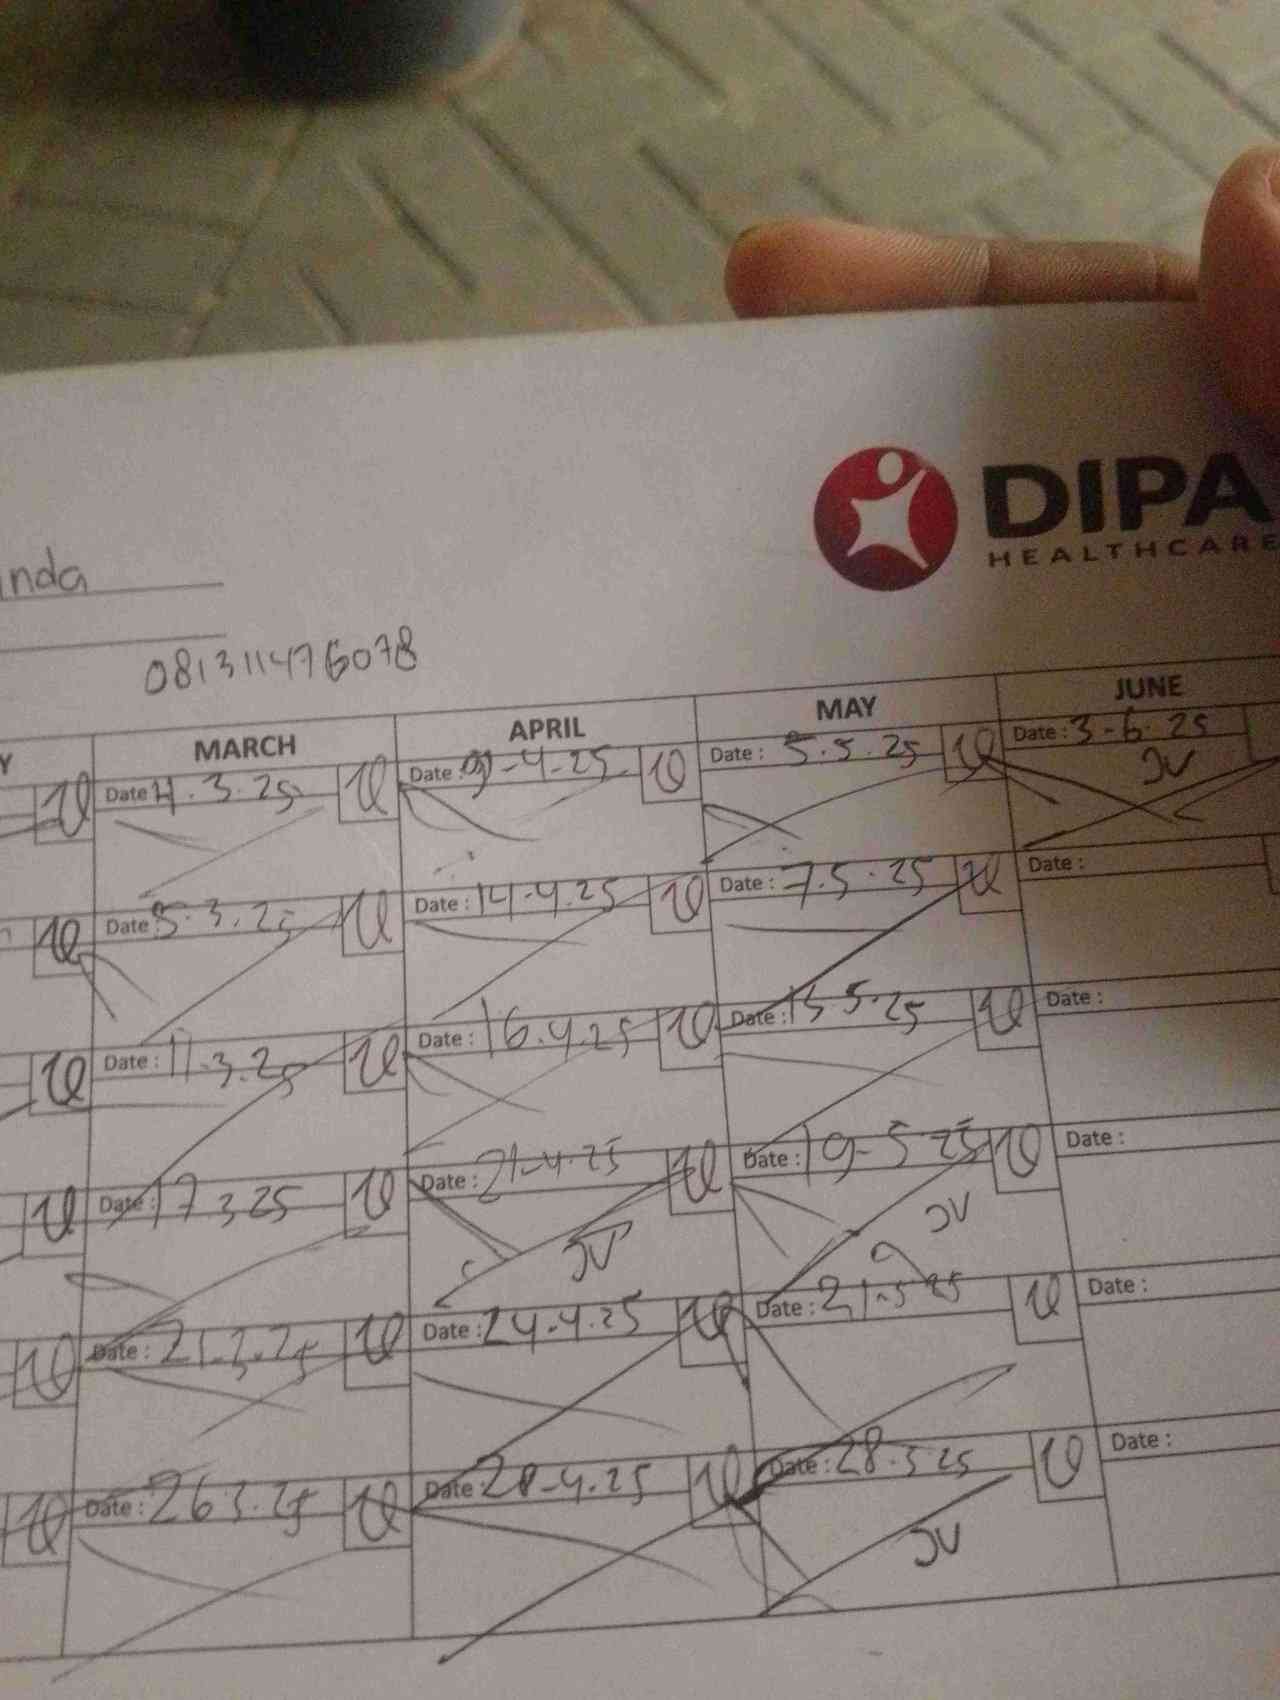 DIPA
HEALTHCARE
inda
081311476078
Y MARCH APRIL MAY JUNE
Date 4.3.25 Date: 9-4-25 Date: 5.5.25 Date: 3-6-25
JV
Date: 5.3.25 Date: 14-4.25 Date: 7.5.25 Date:
Date: 11.3.25 Date: 16.4.25 Date: 15.5.25 Date:
Date: 17 3 25 Date: 21-4.25 Date: 19-5 25 Date:
JV JV
Date: 21.3.25 Date: 24-4.25 Date: 21-5 25 Date:
Date: 26 3.25 Date: 28-4.25 Date: 28.5 25 Date:
JV